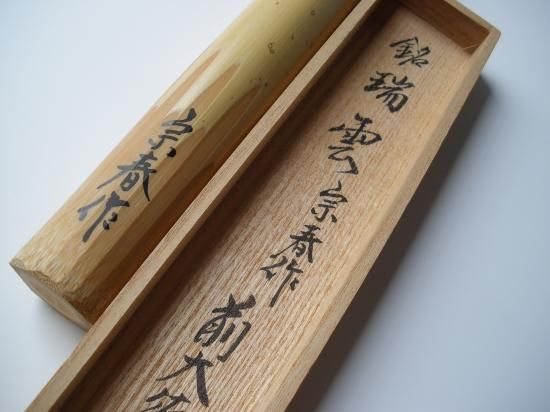 宗春作
銘瑞雲宗春作前大